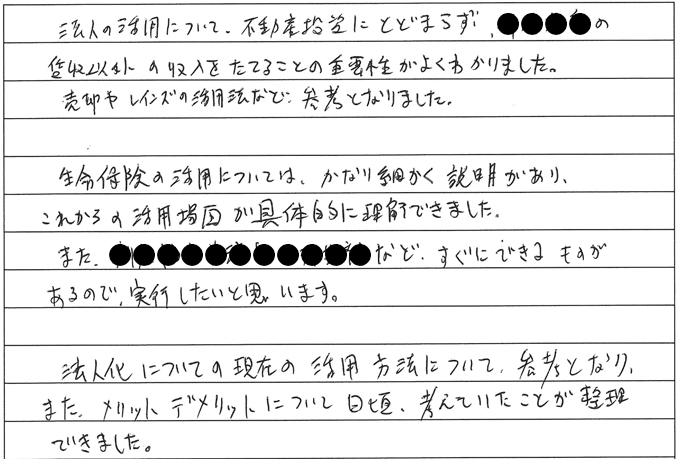 法人の活用について、不動産投資にとどまらず、●●●●の
賃収以外の収入をたてることの重要性がよくわかりました。
売却やレインズの活用法など、参考となりました。
生命保険の活用については、かなり細かく説明があり、
これからの活用場面が具体的に理解できました。
また、●●●●●●●●●●●など、すぐにできるものが
あるので、実行したいと思います。
法人化についての現在の活用方法について、参考となり、
また、メリットデメリットについて日頃、考えていたことが整理
できました。